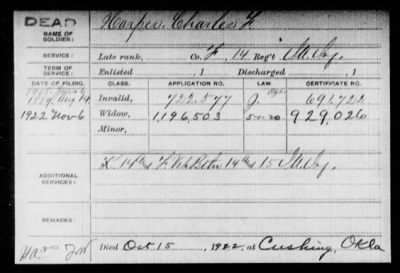 DEAD
NAME OF SOLDIER:
Harper, Charles F.
SERVICE:
Late rank, Co. F, 14 Reg't Ills Inf.
TERM OF SERVICE:
Enlisted , 1 Discharged , 1
DATE OF FILING. CLASS. APPLICATION NO. LAW. CERTIFICATE NO.
1889 Aug 14 Invalid, 722.577 J. 691,722
1922 Nov 6 Widow, 1,196,503 5-1-20 929,026
Minor,
ADDITIONAL SERVICES:
K. 14 and F. Vet Battn 14 and 15 Ills Inf.
REMARKS:
Died Oct 15, 1922, at Cushing, Okla